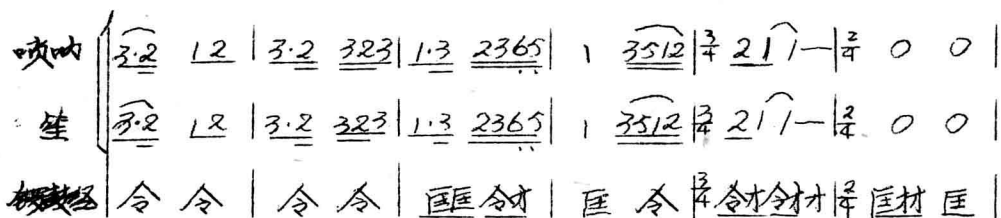 唢呐 3·2 12 | 3·2 323 | 1·3 2365 | 1 3512 | 3/4 21 1 — | 2/4 0 0 |
笙 3·2 12 | 3·2 323 | 1·3 2365 | 1 3512 | 3/4 21 1 — | 2/4 0 0 |
令 令 | 令 令 | 匡匡 令才 | 匡 令 | 3/4 令才令才才 | 2/4 匡材 匡 |